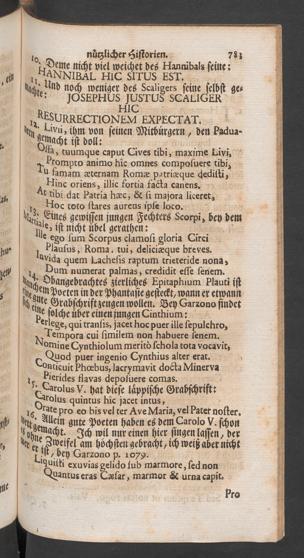 nützlicher Historien. 783
10. Deme nicht viel weichet des Hannibals seine:
HANNIBAL HIC SITUS EST.
11. Und noch weniger des Scaligers seine selbst ge-
machte:
JOSEPHUS JUSTUS SCALIGER
HIC
RESURRECTIONEM EXPECTAT.
12. Livii, ihm von seinen Mitbürgern, den Padua-
nern gemacht ist voll:
Ossa, tuumque caput Cives tibi, maxime Livi,
Prompto animo hic omnes composuere tibi,
Tu famam æternam Romæ patriæque dedisti,
Hinc oriens, illic fortia facta canens.
At tibi dat Patria hæc, & si majora liceret,
Hoc toto stares aureus ipse loco.
13. Eines gewissen jungen Fechters Scorpi, bey dem
Martiale, ist nicht übel gerathen:
Ille ego sum Scorpus clamosi gloria Circi
Plausus, Roma, tui, deliciæque breves.
Invida quem Lachesis raptum trieteride nona,
Dum numerat palmas, credidit esse senem.
14. Obangebrachtes zierliches Epitaphium Plauti ist
manchem Poeten in der Phantasie gesteckt, wann er etwann
eine gute Grabschrift zeugen wollen. Bey Garzono findet
sich eine solche über einen jungen Cinthium:
Perlege, qui transis, jacet hoc puer ille sepulchro,
Tempora cui similem non habuere senem.
Nomine Cynthiolum meritò schola tota vocavit,
Quod puer ingenio Cynthius alter erat.
Conticuit Phœbus, lacrymavit docta Minerva
Pierides flavas deposuere comas.
15. Carolus V. hat diese läppische Grabschrift:
Carolus quintus hic jacet intus,
Orate pro eo bis vel ter Ave Maria, vel Pater noster.
16. Allein gute Poeten haben es dem Carolo V. schon
gemacht. Ich will nur einen hier singen lassen, der
es ohne Zweifel am höchsten gebracht, ich weiß aber nicht
wer er ist, bey Garzono p. 1079.
Liquisti exuvias gelido sub marmore, sed non
Quantus eras Cæsar, marmor & urna capit.
Pro